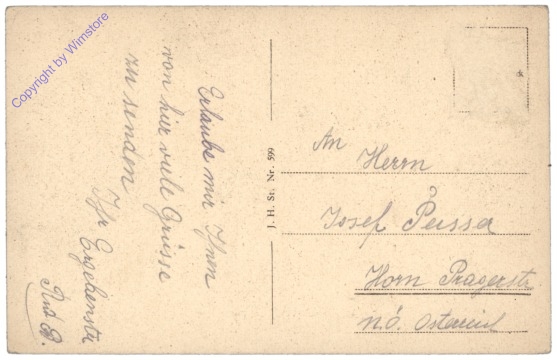 Copyright by Wimstore
Erlaube mir Ihnen
von hier viele Grüsse
zu senden
Ihr Ergebenster
J. H. St. Nr. 599
An
Herrn
Josef
Horn Pragerstr
N.Ö. Österreich